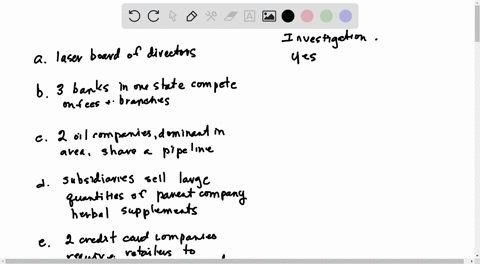 Investigation.
yes
a. laser board of directors
b. 3 banks in one state compete
on fees + branches
c. 2 oil companies, dominant in
area, share a pipeline
d. subsidiaries sell large
quantities of parent company
herbal supplements
e. 2 credit card companies
require retailers to